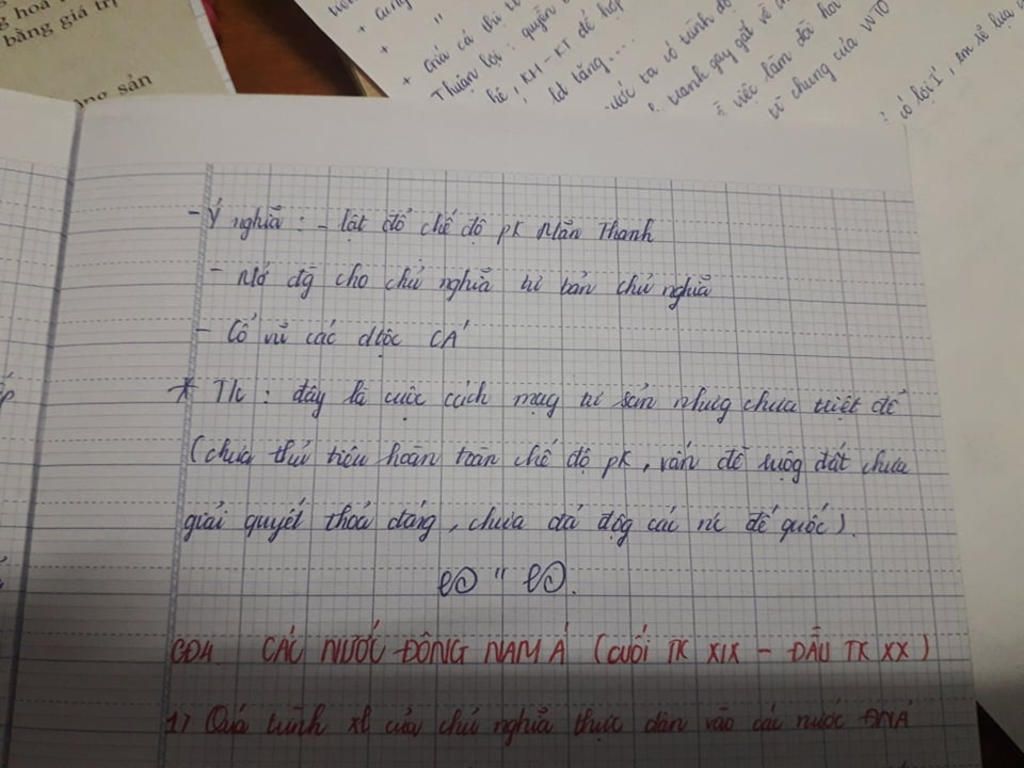 g hoá
bằng giá trị
sản
+ cung
"
+
+ Giá cả thì
Thuận lợi : quyền
hệ, KH - KT để hợp
lđ tăng...
nước ta có
tranh gay gắt về
việc làm đòi hỏi
chung của WTO
có lợi
- Ý nghĩa : - lật đổ chế độ pk Mãn Thanh
- Mở đg cho chủ nghĩa tư bản chủ nghĩa
- Cổ vũ các dtộc CÁ
* TK : đây là cuộc cách mạg tư sản nhưg chưa triệt để
(chưa thủ tiêu hoàn toàn chế độ pk, vấn đề ruộg đất chưa
giải quyết thoả đáng, chưa đả độg các nc đế quốc).
CĐ4. CÁC NƯỚC ĐÔNG NAM Á (CUỐI TK XIX - ĐẦU TK XX)
1) Quá trình xl của chủ nghĩa thực dân vào các nước ĐNÁ